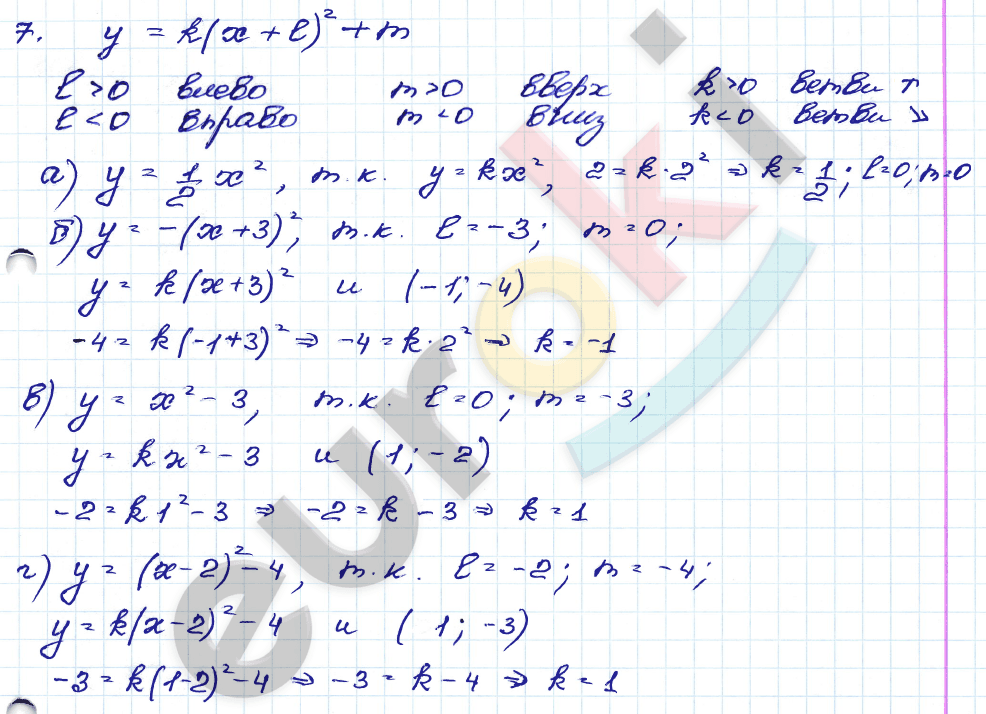 7. y = k(x + l)² + m
l > 0 влево m > 0 вверх k > 0 ветви ↑
l < 0 вправо m < 0 вниз k < 0 ветви ↘
а) y = 1/2 x², т.к. y = kx², 2 = k·2² ⇒ k = 1/2; l = 0; m = 0
б) y = -(x+3)², т.к. l = -3; m = 0;
y = k(x+3)² и (-1; -4)
-4 = k(-1+3)² ⇒ -4 = k·2² ⇒ k = -1
в) y = x² - 3, т.к. l = 0; m = -3;
y = kx² - 3 и (1; -2)
-2 = k1² - 3 ⇒ -2 = k - 3 ⇒ k = 1
г) y = (x-2)² - 4, т.к. l = -2; m = -4;
y = k(x-2)² - 4 и (1; -3)
-3 = k(1-2)² - 4 ⇒ -3 = k - 4 ⇒ k = 1
euroki